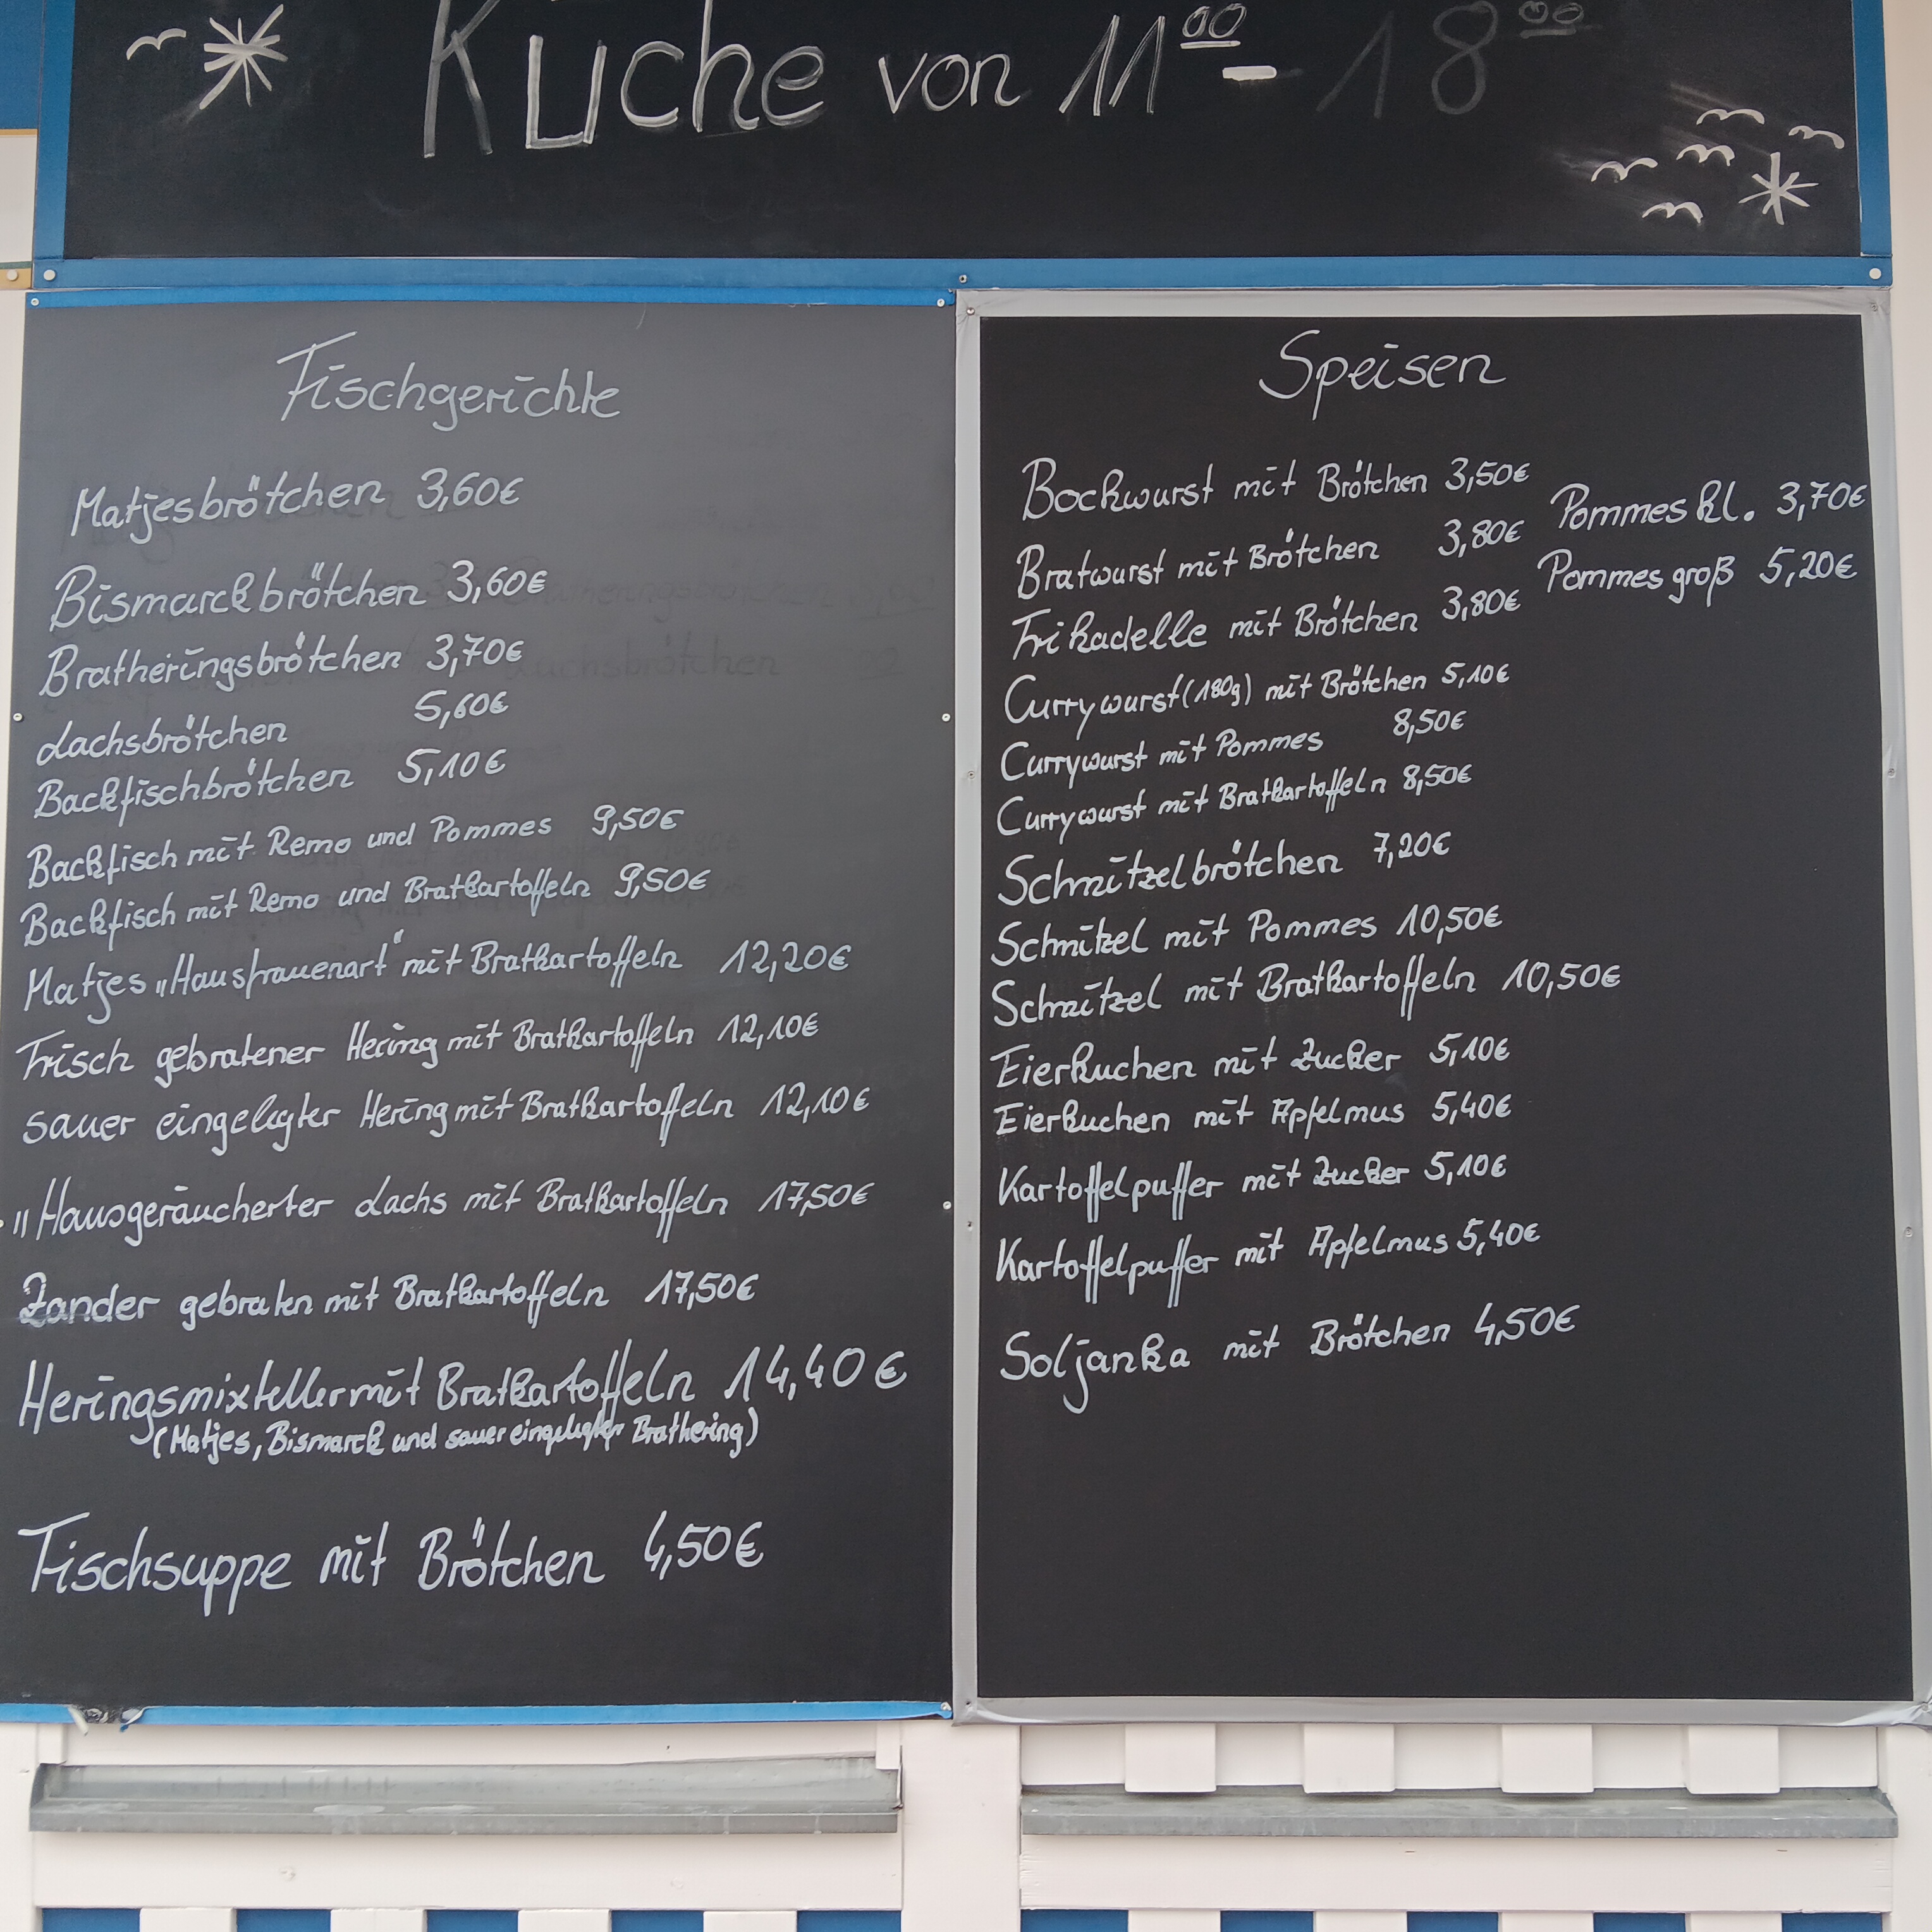 Küche von 11⁰⁰ - 18⁰⁰
Fischgerichte
Matjesbrötchen 3,60€
Bismarckbrötchen 3,60€
Bratheringsbrötchen 3,70€
Lachsbrötchen 5,60€
Backfischbrötchen 5,10€
Backfisch mit Remo und Pommes 9,50€
Backfisch mit Remo und Bratkartoffeln 9,50€
Matjes „Hausfrauenart“ mit Bratkartoffeln 12,20€
Frisch gebratener Hering mit Bratkartoffeln 12,10€
sauer eingelegter Hering mit Bratkartoffeln 12,10€
"Hausgeräucherter Lachs mit Bratkartoffeln 17,50€
Zander gebraten mit Bratkartoffeln 17,50€
Heringsmixteller mit Bratkartoffeln 14,40€
(Matjes, Bismarck und sauer eingelegter Brathering)
Fischsuppe mit Brötchen 4,50€
Speisen
Bockwurst mit Brötchen 3,50€
Bratwurst mit Brötchen 3,80€
Frikadelle mit Brötchen 3,80€
Currywurst (180g) mit Brötchen 5,10€
Currywurst mit Pommes 8,50€
Currywurst mit Bratkartoffeln 8,50€
Schnitzelbrötchen 7,20€
Schnitzel mit Pommes 10,50€
Schnitzel mit Bratkartoffeln 10,50€
Eierkuchen mit Zucker 5,10€
Eierkuchen mit Apfelmus 5,40€
Kartoffelpuffer mit Zucker 5,10€
Kartoffelpuffer mit Apfelmus 5,40€
Soljanka mit Brötchen 4,50€
Pommes kl. 3,70€
Pommes groß 5,20€